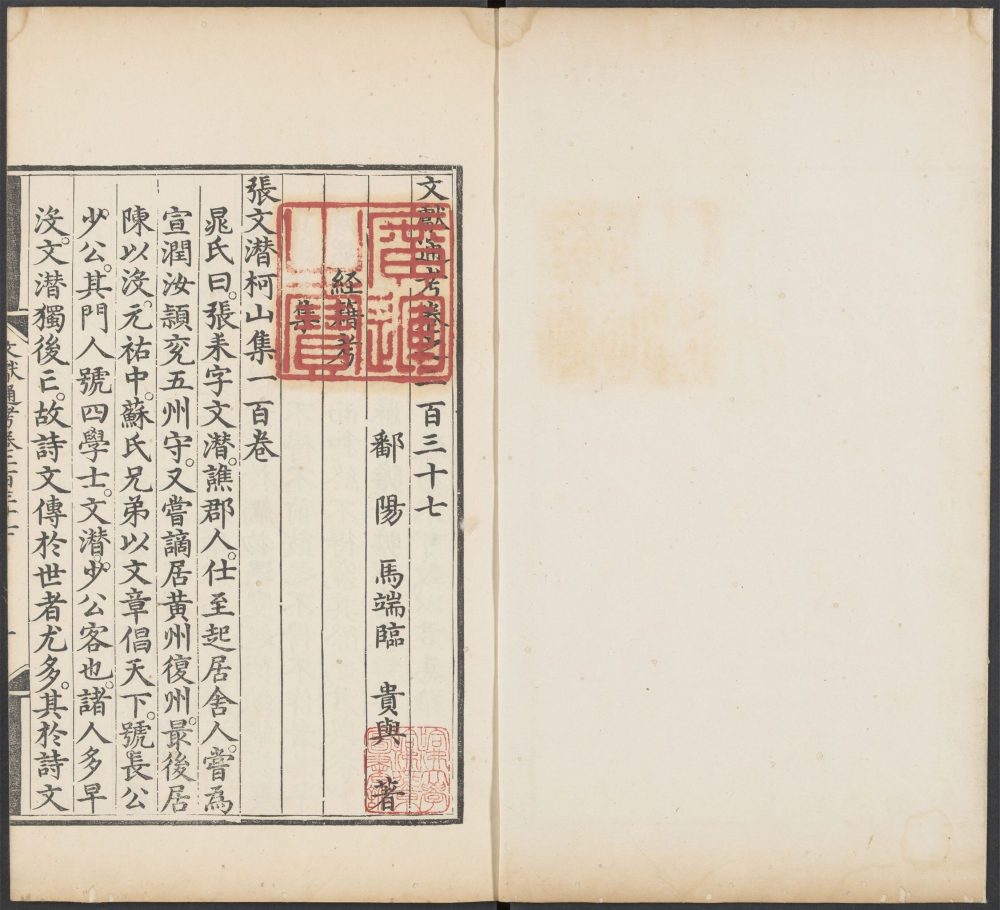 文獻通考卷之二百三十七
鄱陽 馬端臨 貴與 著
經籍考
集
張文潛柯山集一百卷
晁氏曰。張耒字文潛。譙郡人。仕至起居舍人。嘗爲
宣潤汝潁兖五州守。又嘗謫居黃州復州。最後居
陳以沒。元祐中。蘇氏兄弟以文章倡天下。號長公
少公。其門人號四學士。文潛少公客也。諸人多早
沒。文潛獨後亡。故詩文傳於世者尤多。其於詩文
文獻通考卷二百三十七 一
廣運之寶